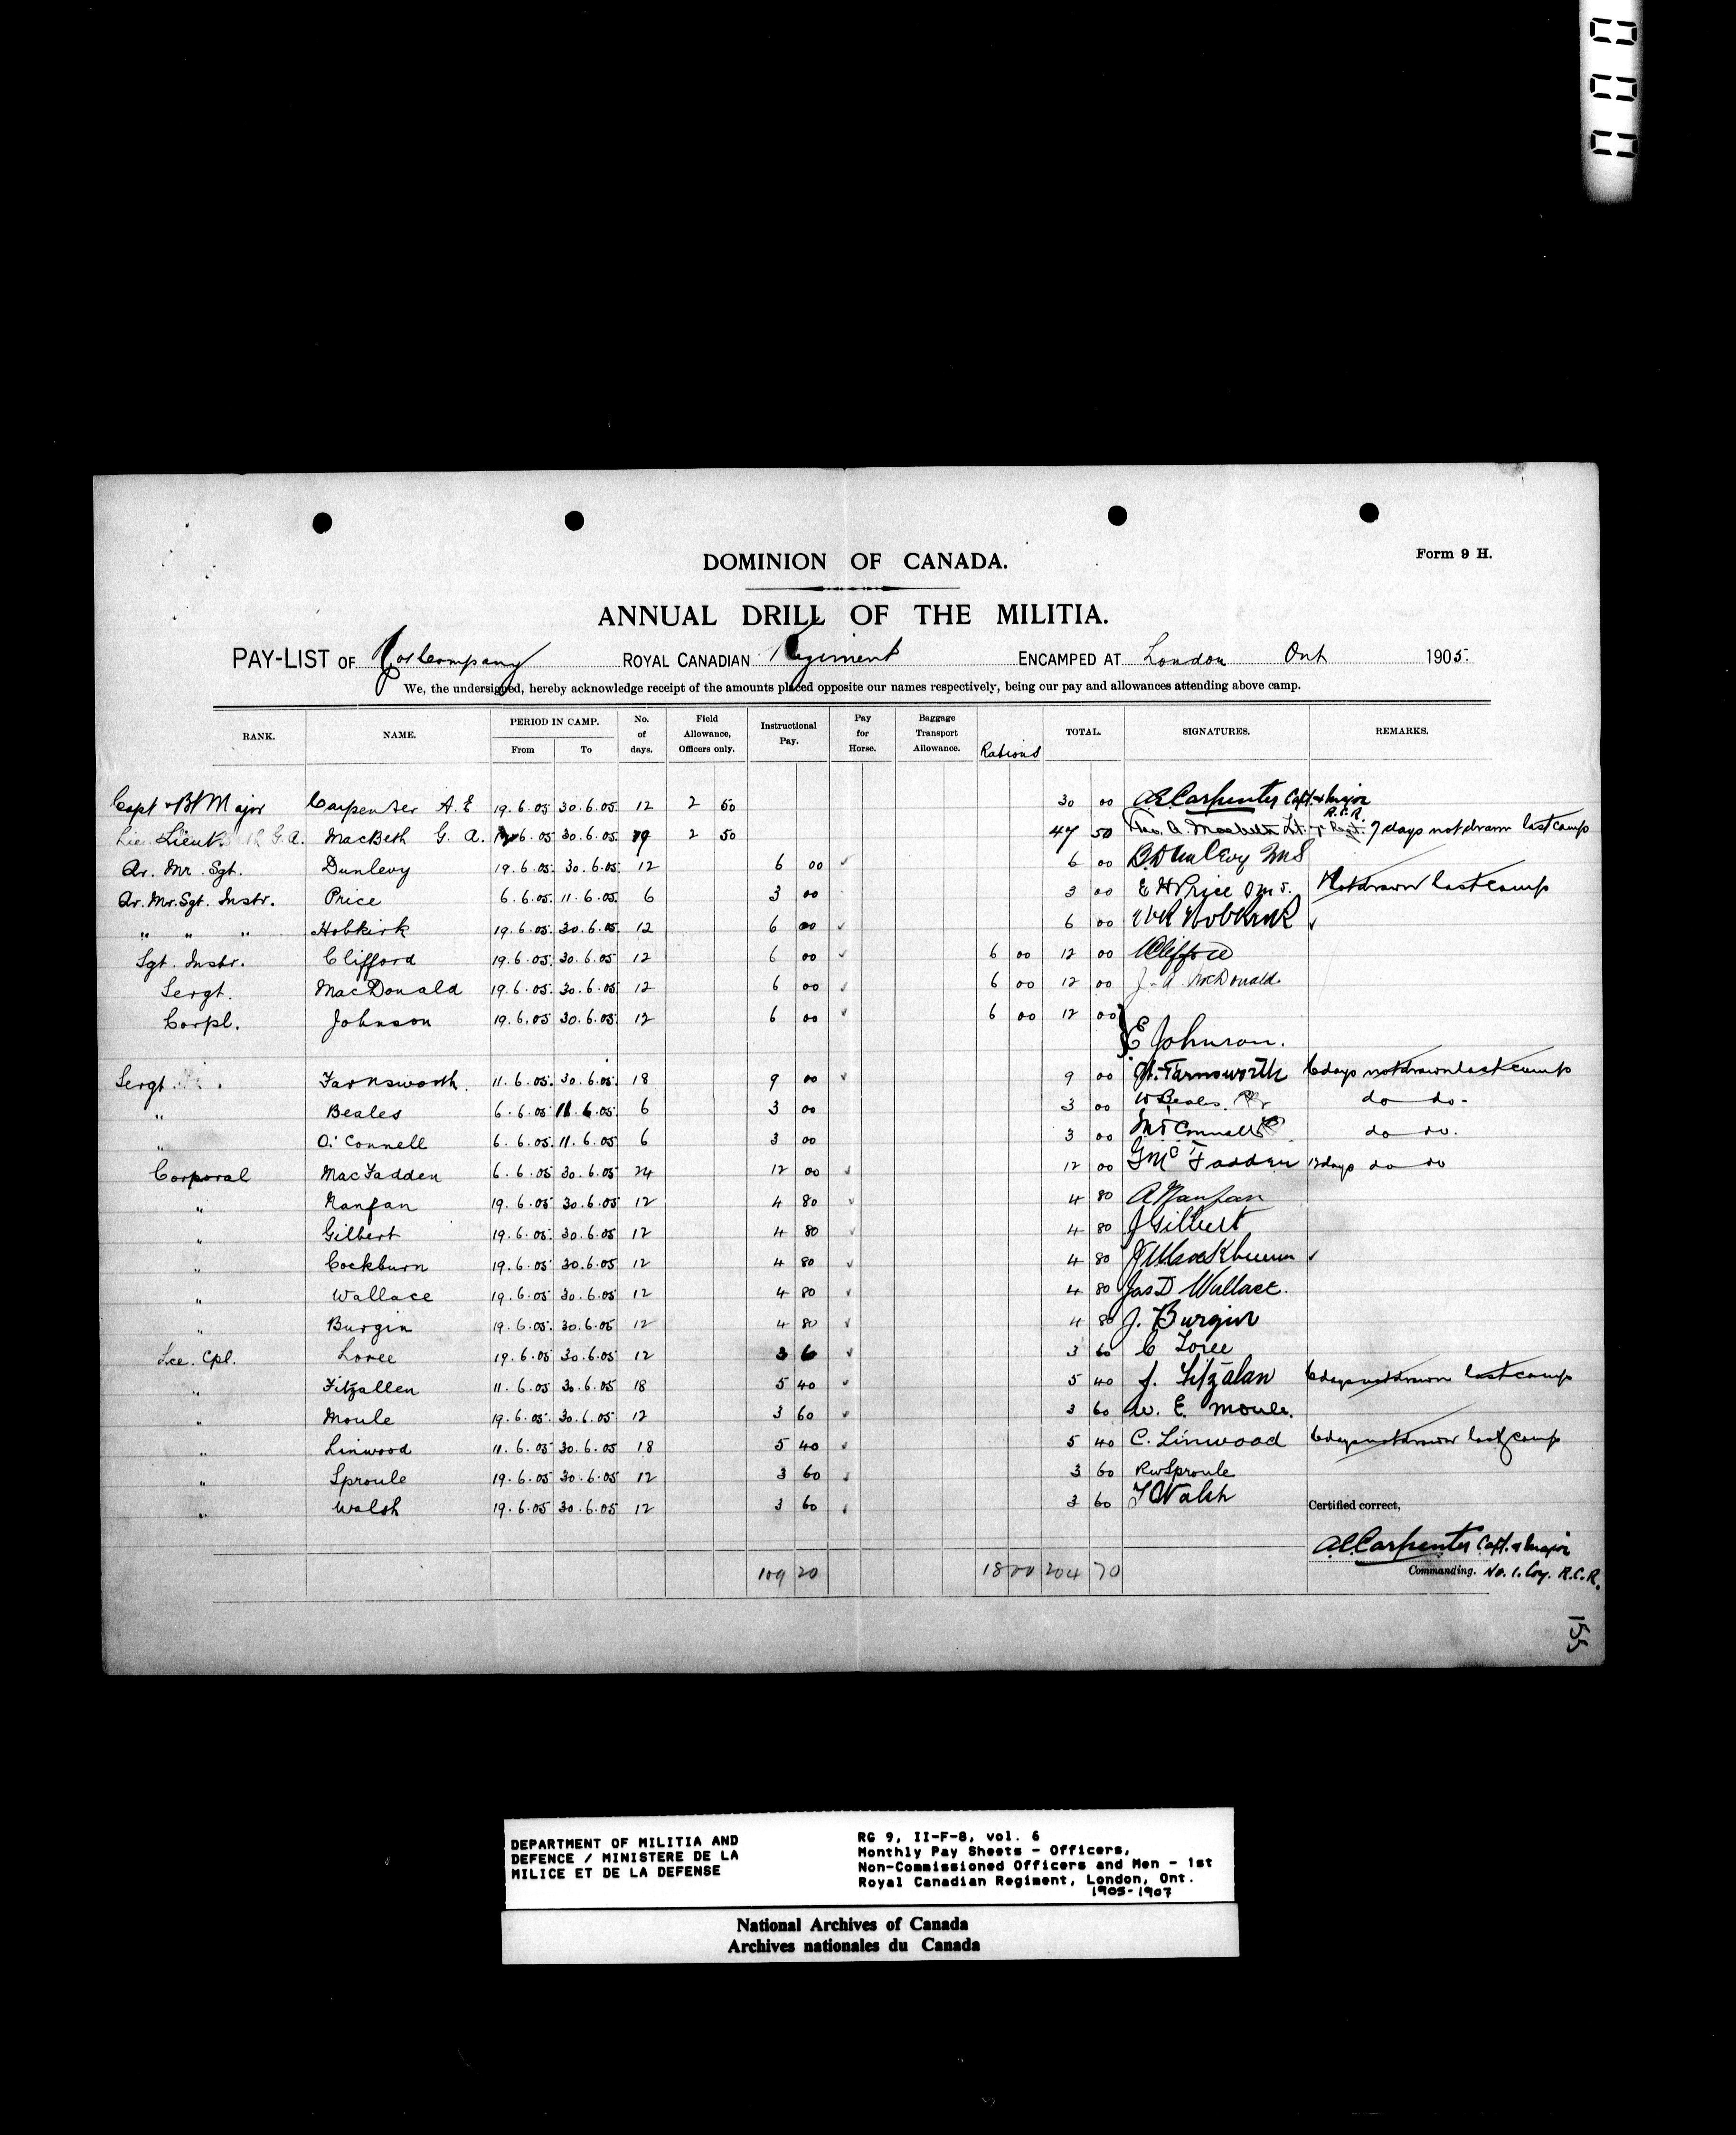 000
DOMINION OF CANADA.
Form 9 H.
ANNUAL DRILL OF THE MILITIA.
PAY-LIST OF Company ROYAL CANADIAN Regiment ENCAMPED AT London Ont 1905.
We, the undersigned, hereby acknowledge receipt of the amounts placed opposite our names respectively, being our pay and allowances attending above camp.
RANK. NAME. PERIOD IN CAMP. From To No. of days. Field Allowance, Officers only. Instructional Pay. Pay for Horse. Baggage Transport Allowance. Rations TOTAL. SIGNATURES. REMARKS.
Capt & Bt Major Carpenter A. E 19.6.05 30.6.05 12 2 50 30 00 A.E. Carpenter Capt. & Major R.C.R.
Lieut. G. A. MacBeth G. A. 6.05 30.6.05 19 2 50 47 50 Geo. A. Macbeth Lt. 7 Regt. 7 days not drawn last camp
Qr. Mr. Sgt. Dunlevy 19.6.05 30.6.05 12 6 00 ✓ 6 00 Dunlevy
Qr. Mr. Sgt. Instr. Price 6.6.05 11.6.05 6 3 00 3 00 E H Price QMS. Not drawn last camp
" " " Hobkirk 19.6.05 30.6.05 12 6 00 ✓ 6 00 Hobkirk ✓
Sgt. Instr. Clifford 19.6.05 30.6.05 12 6 00 ✓ 6 00 12 00 Clifford
Sergt. MacDonald 19.6.05 30.6.05 12 6 00 ✓ 6 00 12 00 J. A. McDonald.
Corpl. Johnson 19.6.05 30.6.05 12 6 00 ✓ 6 00 12 00
E Johnson.
Sergt. Farnsworth. 11.6.05 30.6.05 18 9 00 ✓ 9 00 Farnsworth 6 days not drawn last camp
" Beales 6.6.05 11.6.05 6 3 00 3 00 W Beales do do.
" O'Connell 6.6.05 11.6.05 6 3 00 3 00 Connell do do.
Corporal MacFadden 6.6.05 30.6.05 24 12 00 ✓ 12 00 G McFadden 12 days do do
" Nanfan 19.6.05 30.6.05 12 4 80 ✓ 4 80 A Nanfan
" Gilbert 19.6.05 30.6.05 12 4 80 ✓ 4 80 J Gilbert
" Cockburn 19.6.05 30.6.05 12 4 80 ✓ 4 80 Cockburn ✓
" Wallace 19.6.05 30.6.05 12 4 80 ✓ 4 80 Jas D Wallace.
" Burgin 19.6.05 30.6.05 12 4 80 ✓ 4 80 J. Burgin
Lce. Cpl. Loree 19.6.05 30.6.05 12 3 6 ✓ 3 60 C Loree
" Fitzallen 11.6.05 30.6.05 18 5 40 ✓ 5 40 J. Fitzalan 6 days not drawn last camp
" Moule 19.6.05 30.6.05 12 3 60 ✓ 3 60 W. E. Moule.
" Linwood 11.6.05 30.6.05 18 5 40 ✓ 5 40 C. Linwood 6 days not drawn last camp
" Sproule 19.6.05 30.6.05 12 3 60 ✓ 3 60 RW Sproule
" Walsh 19.6.05 30.6.05 12 3 60 ✓ 3 60 Walsh
Certified correct,
A.E. Carpenter Capt. & Major
109 20 18 00 204 70 Commanding. No. 1. Coy. R.C.R.
155
DEPARTMENT OF MILITIA AND
DEFENCE / MINISTERE DE LA
MILICE ET DE LA DEFENSE
RG 9, II-F-8, vol. 6
Monthly Pay Sheets - Officers,
Non-Commissioned Officers and Men - 1st
Royal Canadian Regiment, London, Ont.
1905-1907
National Archives of Canada
Archives nationales du Canada